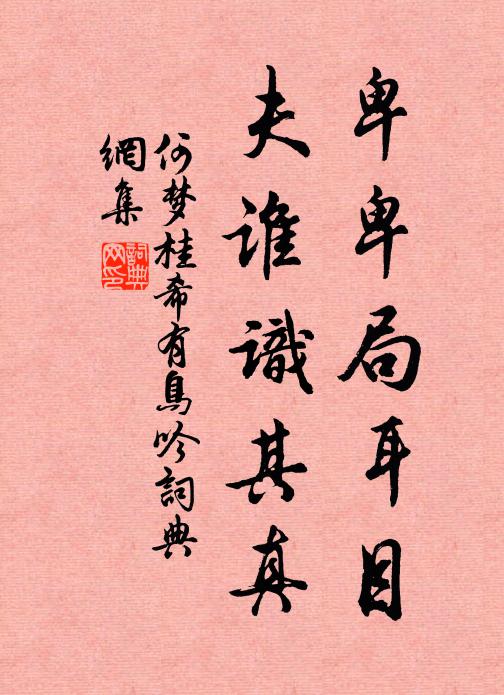 卑卑局耳目
夫谁識其真
何梦桂希有鳥吟詞典
網集
詞典
网印